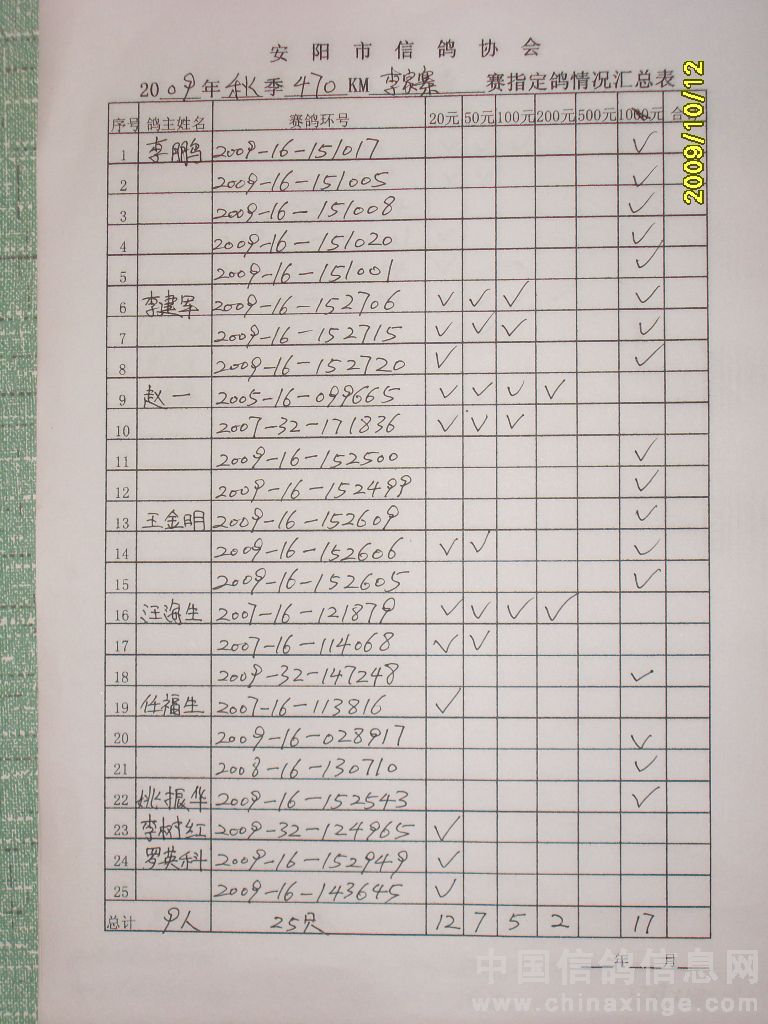 安阳市信鸽协会
2009年秋季470KM李家寨赛指定鸽情况汇总表
序号 鸽主姓名 赛鸽环号 20元 50元 100元 200元 500元 1000元 合
1 李鹏 2009-16-151017 ✓
2 2009-16-151005 ✓
3 2009-16-151008 ✓
4 2009-16-151020 ✓
5 2009-16-151001 ✓
6 李建军 2009-16-152706 ✓ ✓ ✓ ✓
7 2009-16-152715 ✓ ✓ ✓ ✓
8 2009-16-152720 ✓ ✓
9 赵一 2005-16-099665 ✓ ✓ ✓ ✓
10 2007-32-171836 ✓ ✓ ✓
11 2009-16-152500 ✓
12 2009-16-152499 ✓
13 王金明 2009-16-152609 ✓
14 2009-16-152606 ✓ ✓ ✓
15 2009-16-152605 ✓
16 汪海生 2007-16-121879 ✓ ✓ ✓ ✓
17 2007-16-114068 ✓ ✓
18 2009-32-147248 ✓
19 任福生 2007-16-113816 ✓
20 2009-16-028917 ✓
21 2008-16-130710 ✓
22 姚振华 2009-16-152543 ✓
23 李树红 2009-32-124965 ✓
24 罗英科 2009-16-152949 ✓
25 2009-16-143645 ✓
总计 9人 25只 12 7 5 2 17
年 月
2009/10/12
中国信鸽信息网
www.chinaxinge.com